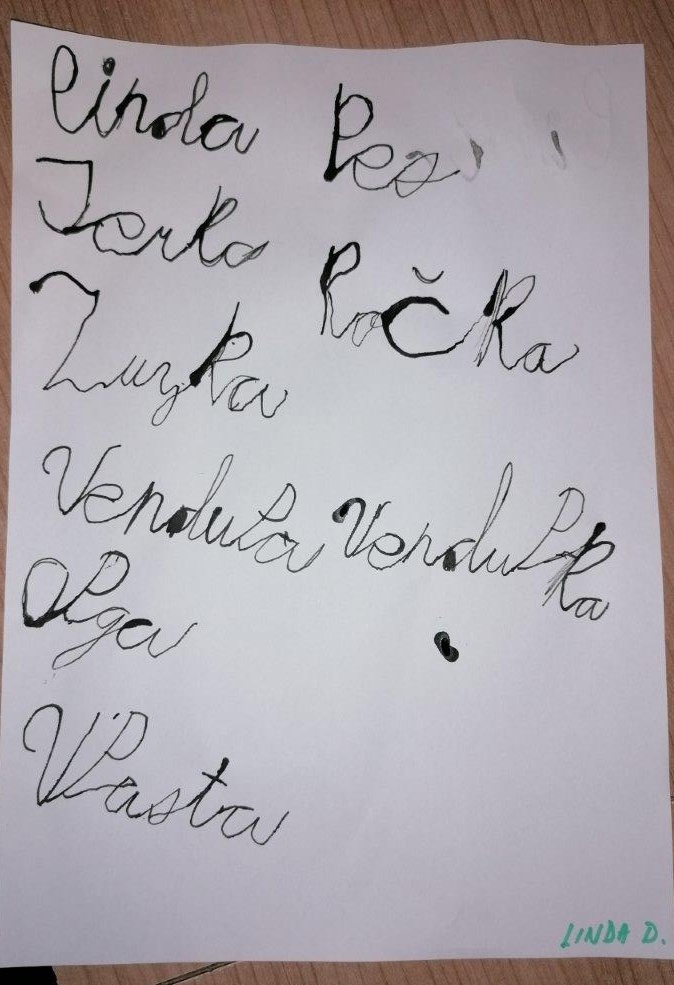 Linda Pes
Kočka
Zuzka
Vendula Vendulka
Olga
Vlasta
LINDA D.